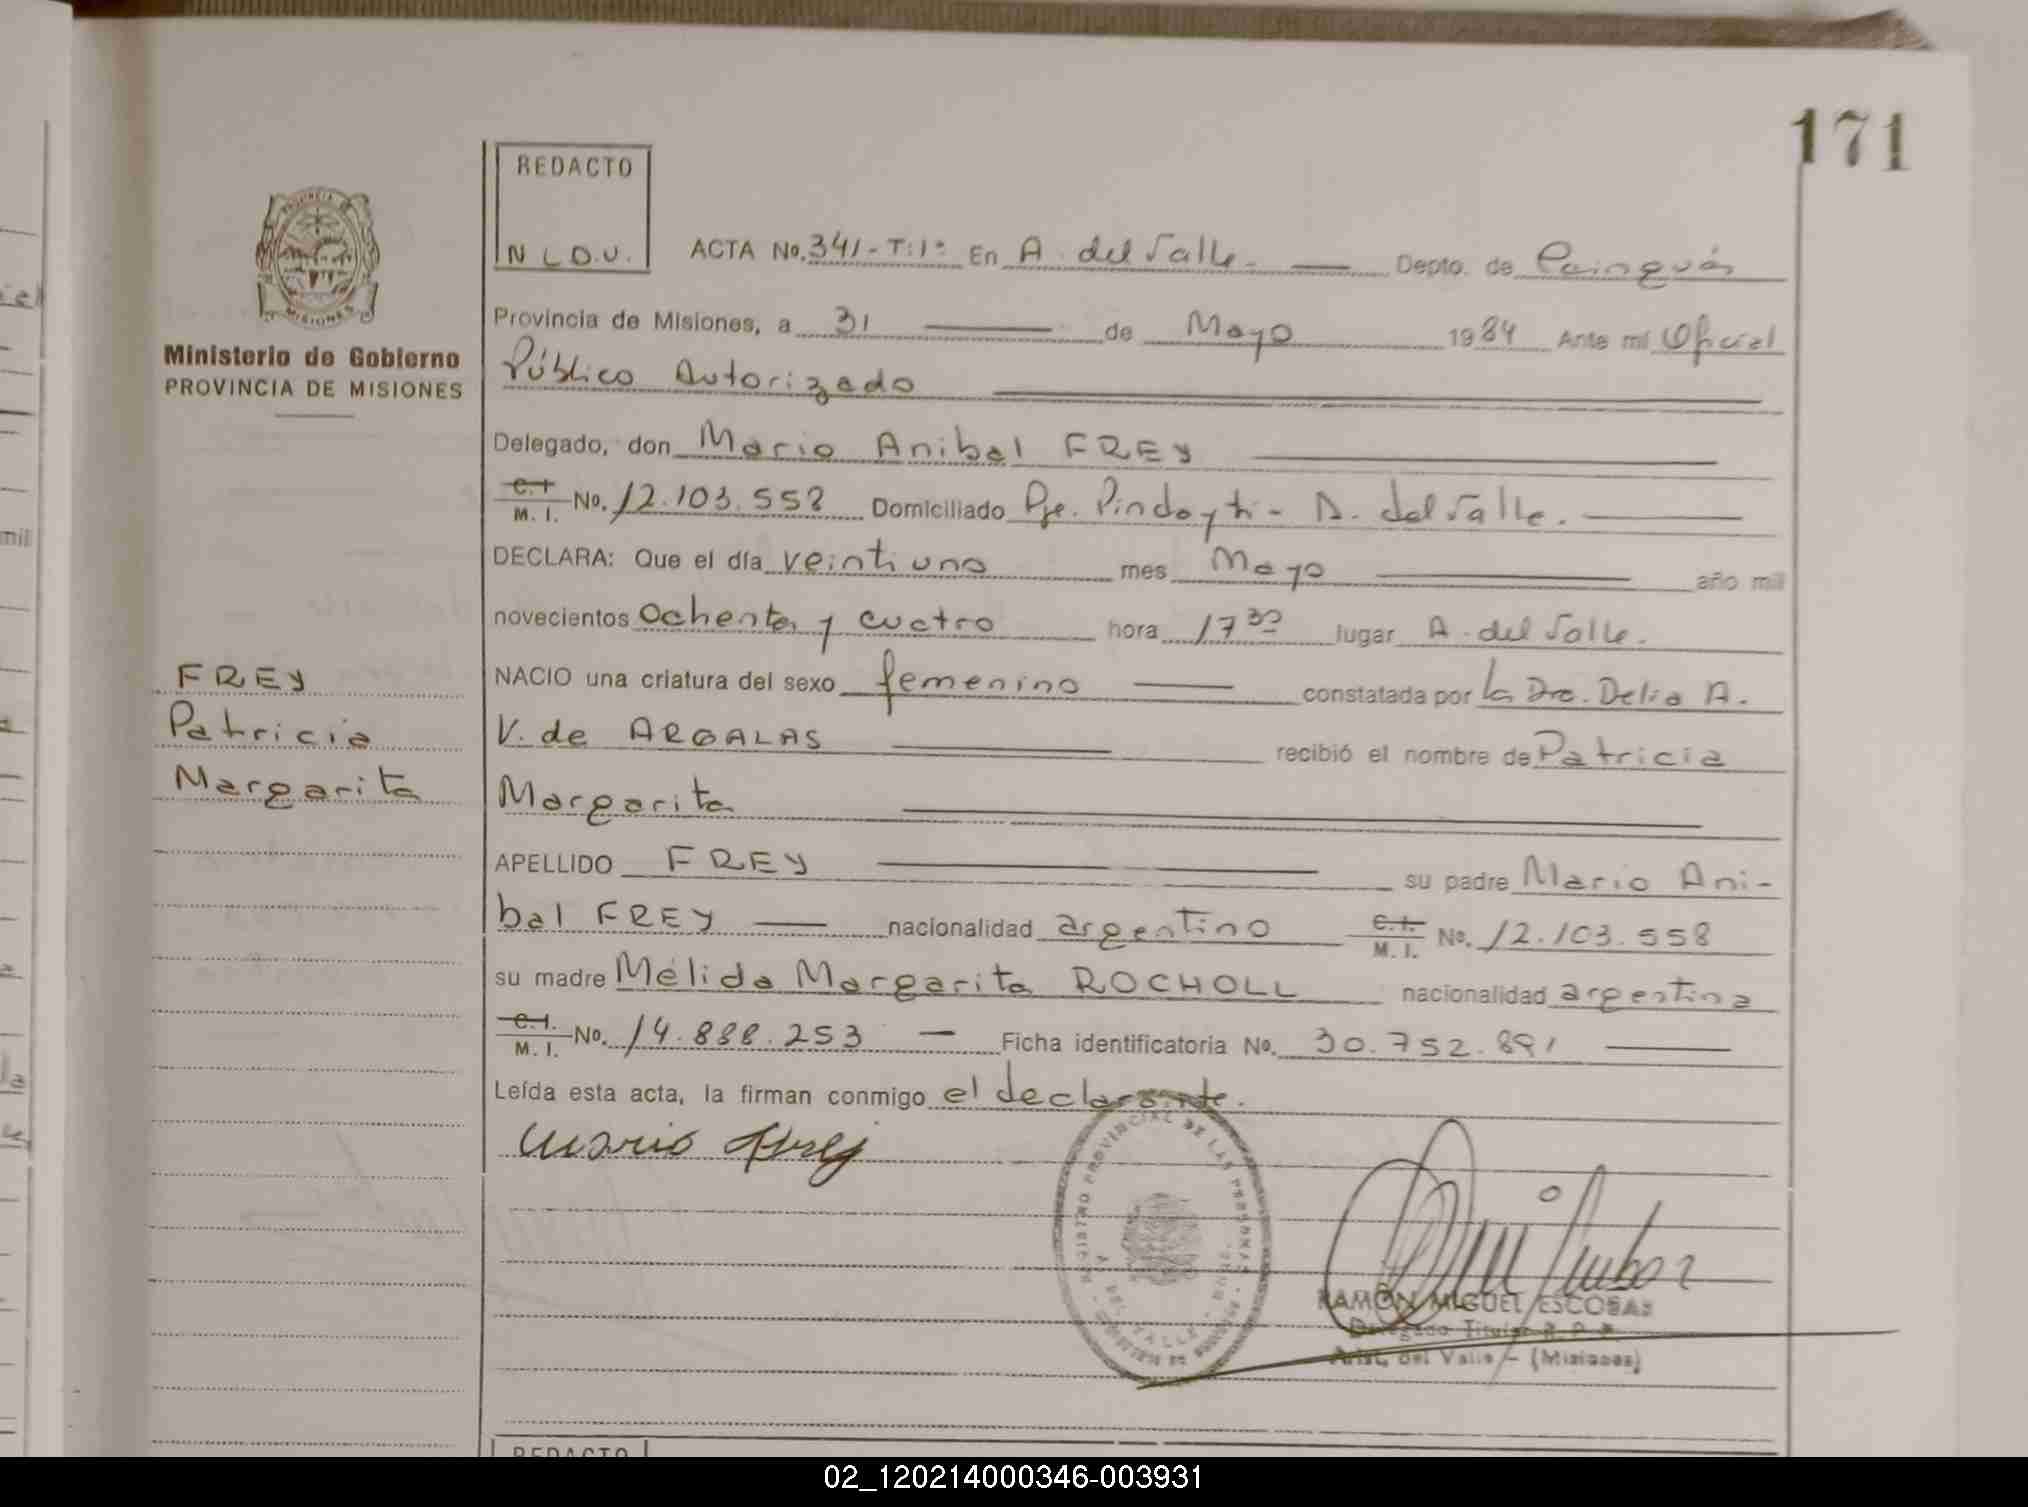 171
REDACTO
N L D.V.
PROVINCIA
MISIONES
Ministerio de Gobierno
PROVINCIA DE MISIONES
ACTA No. 341-T:1º En A. del Valle. Depto. de Cainguás
Provincia de Misiones, a 31 de Mayo 1984 Ante mí Oficial
Público Autorizado
Delegado, don Mario Anibal FREY
C.I. M. I. No. 12.103.558 Domiciliado Pje. Pindayti - A. del Valle.
DECLARA: Que el día veintiuno mes Mayo año mil
novecientos Ochenta y cuatro hora 17 30 lugar A. del Valle.
FREY
Patricia
Margarita
NACIO una criatura del sexo femenino constatada por la Dra. Delia A.
V. de ARGALAS recibió el nombre de Patricia
Margarita
APELLIDO FREY su padre Mario Ani-
bal FREY nacionalidad argentino C.I. M. I. No. 12.103.558
su madre Mélida Margarita ROCHOLL nacionalidad argentina
C.I. M. I. No. 14.888.253 Ficha identificatoria No. 30.752.891
Leída esta acta, la firman conmigo el declarante.
Mario Frey
REGISTRO PROVINCIAL DE LAS PERSONAS
A. DEL VALLE
RAMON MIGUEL ESCOBAR
Delegado Titular R. P. P.
Arist. del Valle - (Misiones)
REDACTO
02_120214000346-003931